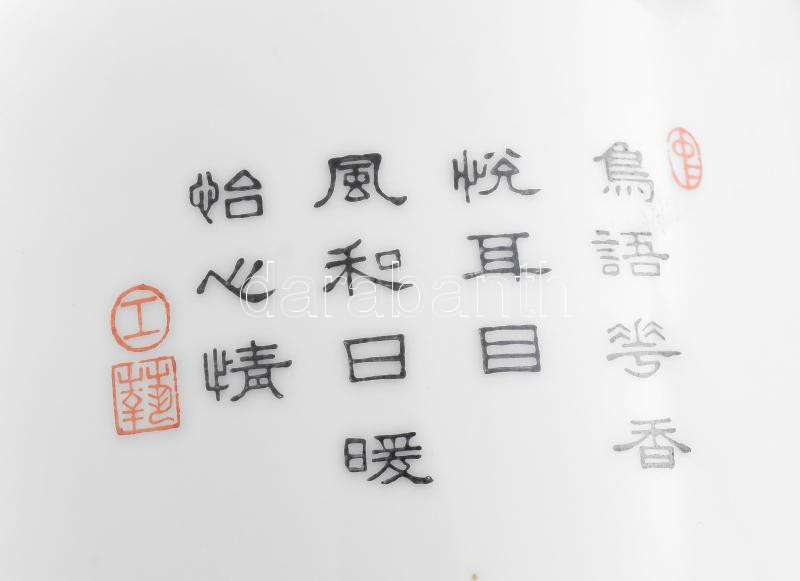 鳥語花香
悅耳目
風和日暖
怡心情
工
藝
darabanth